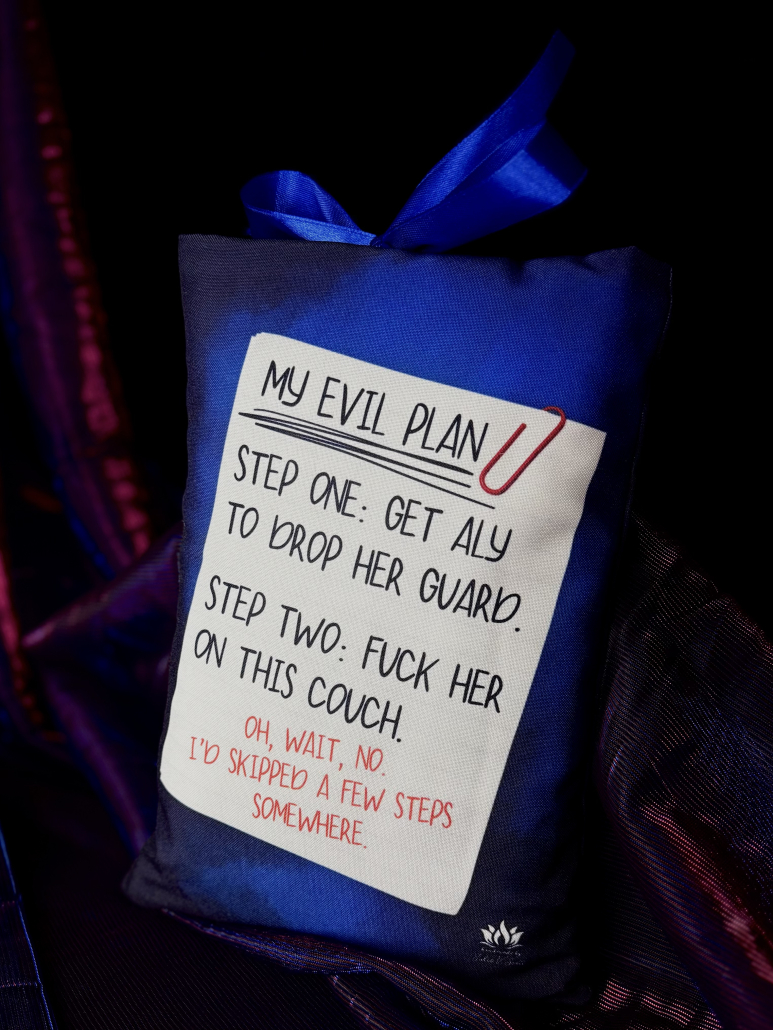 MY EVIL PLAN
STEP ONE: GET ALY
TO DROP HER GUARD.
STEP TWO: FUCK HER
ON THIS COUCH.
OH, WAIT, NO.
I'D SKIPPED A FEW STEPS
SOMEWHERE.